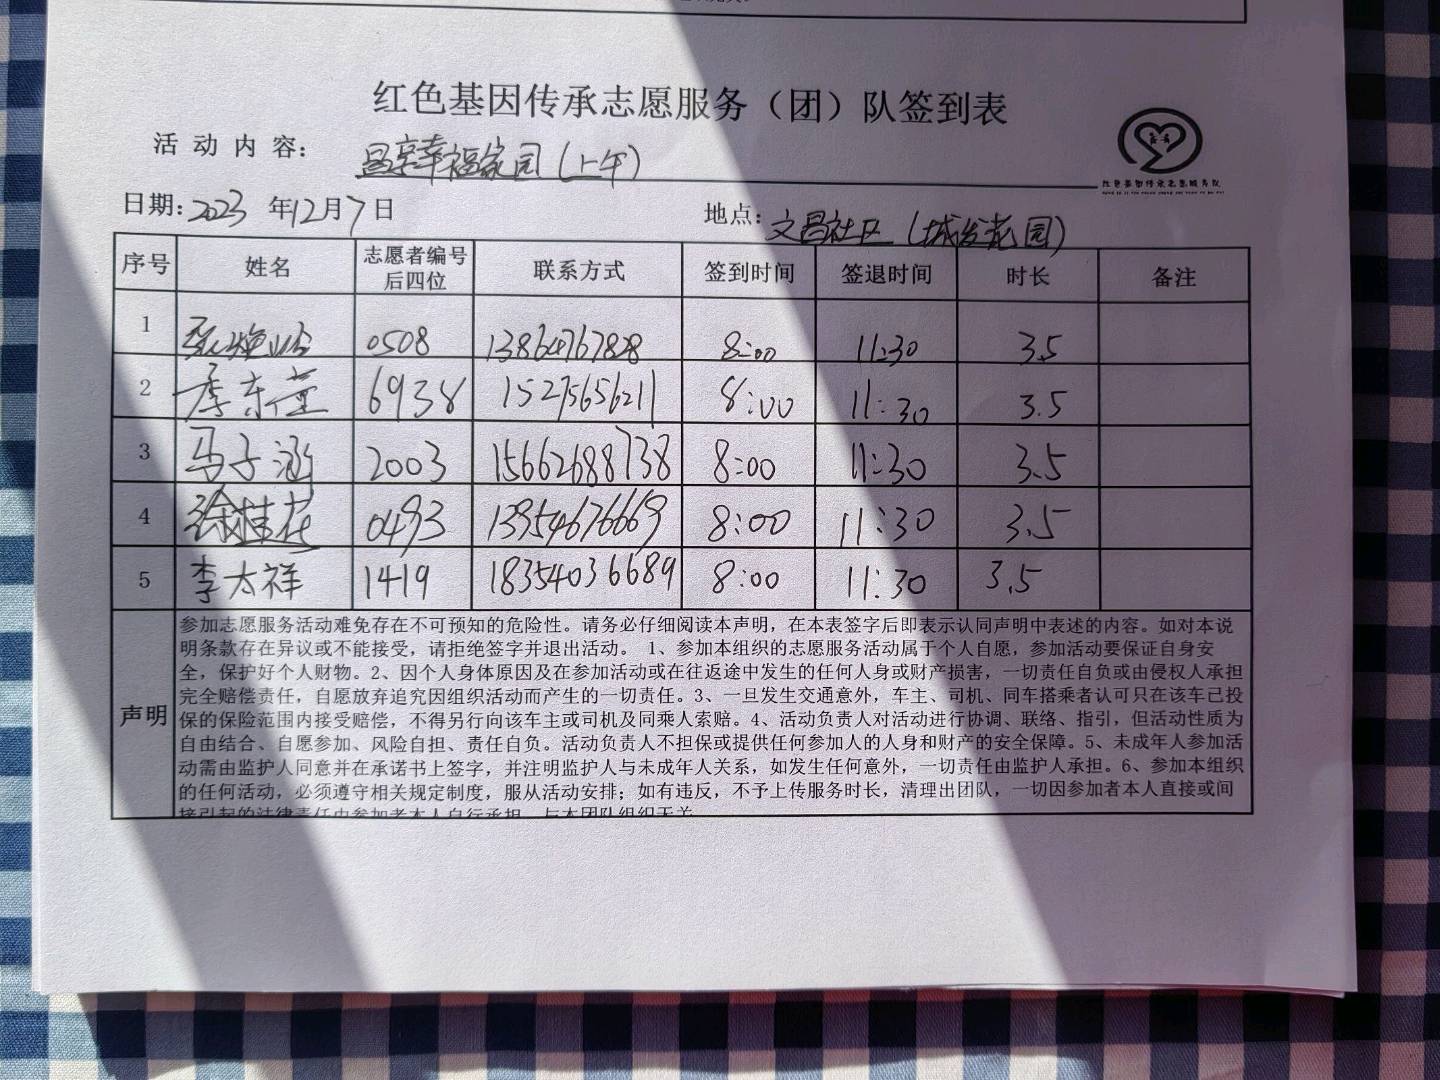 红色基因传承志愿服务（团）队签到表
活动内容： 昌宗幸福家园（上午）
红色基因传承志愿服务队
日期：2023年12月7日 地点：文昌社区（城发花园）
序号 姓名 志愿者编号后四位 联系方式 签到时间 签退时间 时长 备注
1 0508 13864767828 8:00 11:30 3.5
2 季东莹 6938 15275656211 8:00 11:30 3.5
3 马子涵 2003 15662688738 8:00 11:30 3.5
4 徐桂花 0493 13954676669 8:00 11:30 3.5
5 李太祥 1419 18354036689 8:00 11:30 3.5
声明
参加志愿服务活动难免存在不可预知的危险性。请务必仔细阅读本声明，在本表签字后即表示认同声明中表述的内容。如对本说
明条款存在异议或不能接受，请拒绝签字并退出活动。 1、参加本组织的志愿服务活动属于个人自愿，参加活动要保证自身安
全，保护好个人财物。2、因个人身体原因及在参加活动或在往返途中发生的任何人身或财产损害，一切责任自负或由侵权人承担
完全赔偿责任，自愿放弃追究因组织活动而产生的一切责任。3、一旦发生交通意外，车主、司机、同车搭乘者认可只在该车已投
保的保险范围内接受赔偿，不得另行向该车主或司机及同乘人索赔。4、活动负责人对活动进行协调、联络、指引，但活动性质为
自由结合、自愿参加、风险自担、责任自负。活动负责人不担保或提供任何参加人的人身和财产的安全保障。5、未成年人参加活
动需由监护人同意并在承诺书上签字，并注明监护人与未成年人关系，如发生任何意外，一切责任由监护人承担。6、参加本组织
的任何活动，必须遵守相关规定制度，服从活动安排；如有违反，不予上传服务时长，清理出团队，一切因参加者本人直接或间
接引起的法律责任由参加者本人自行承担，与本团队组织无关